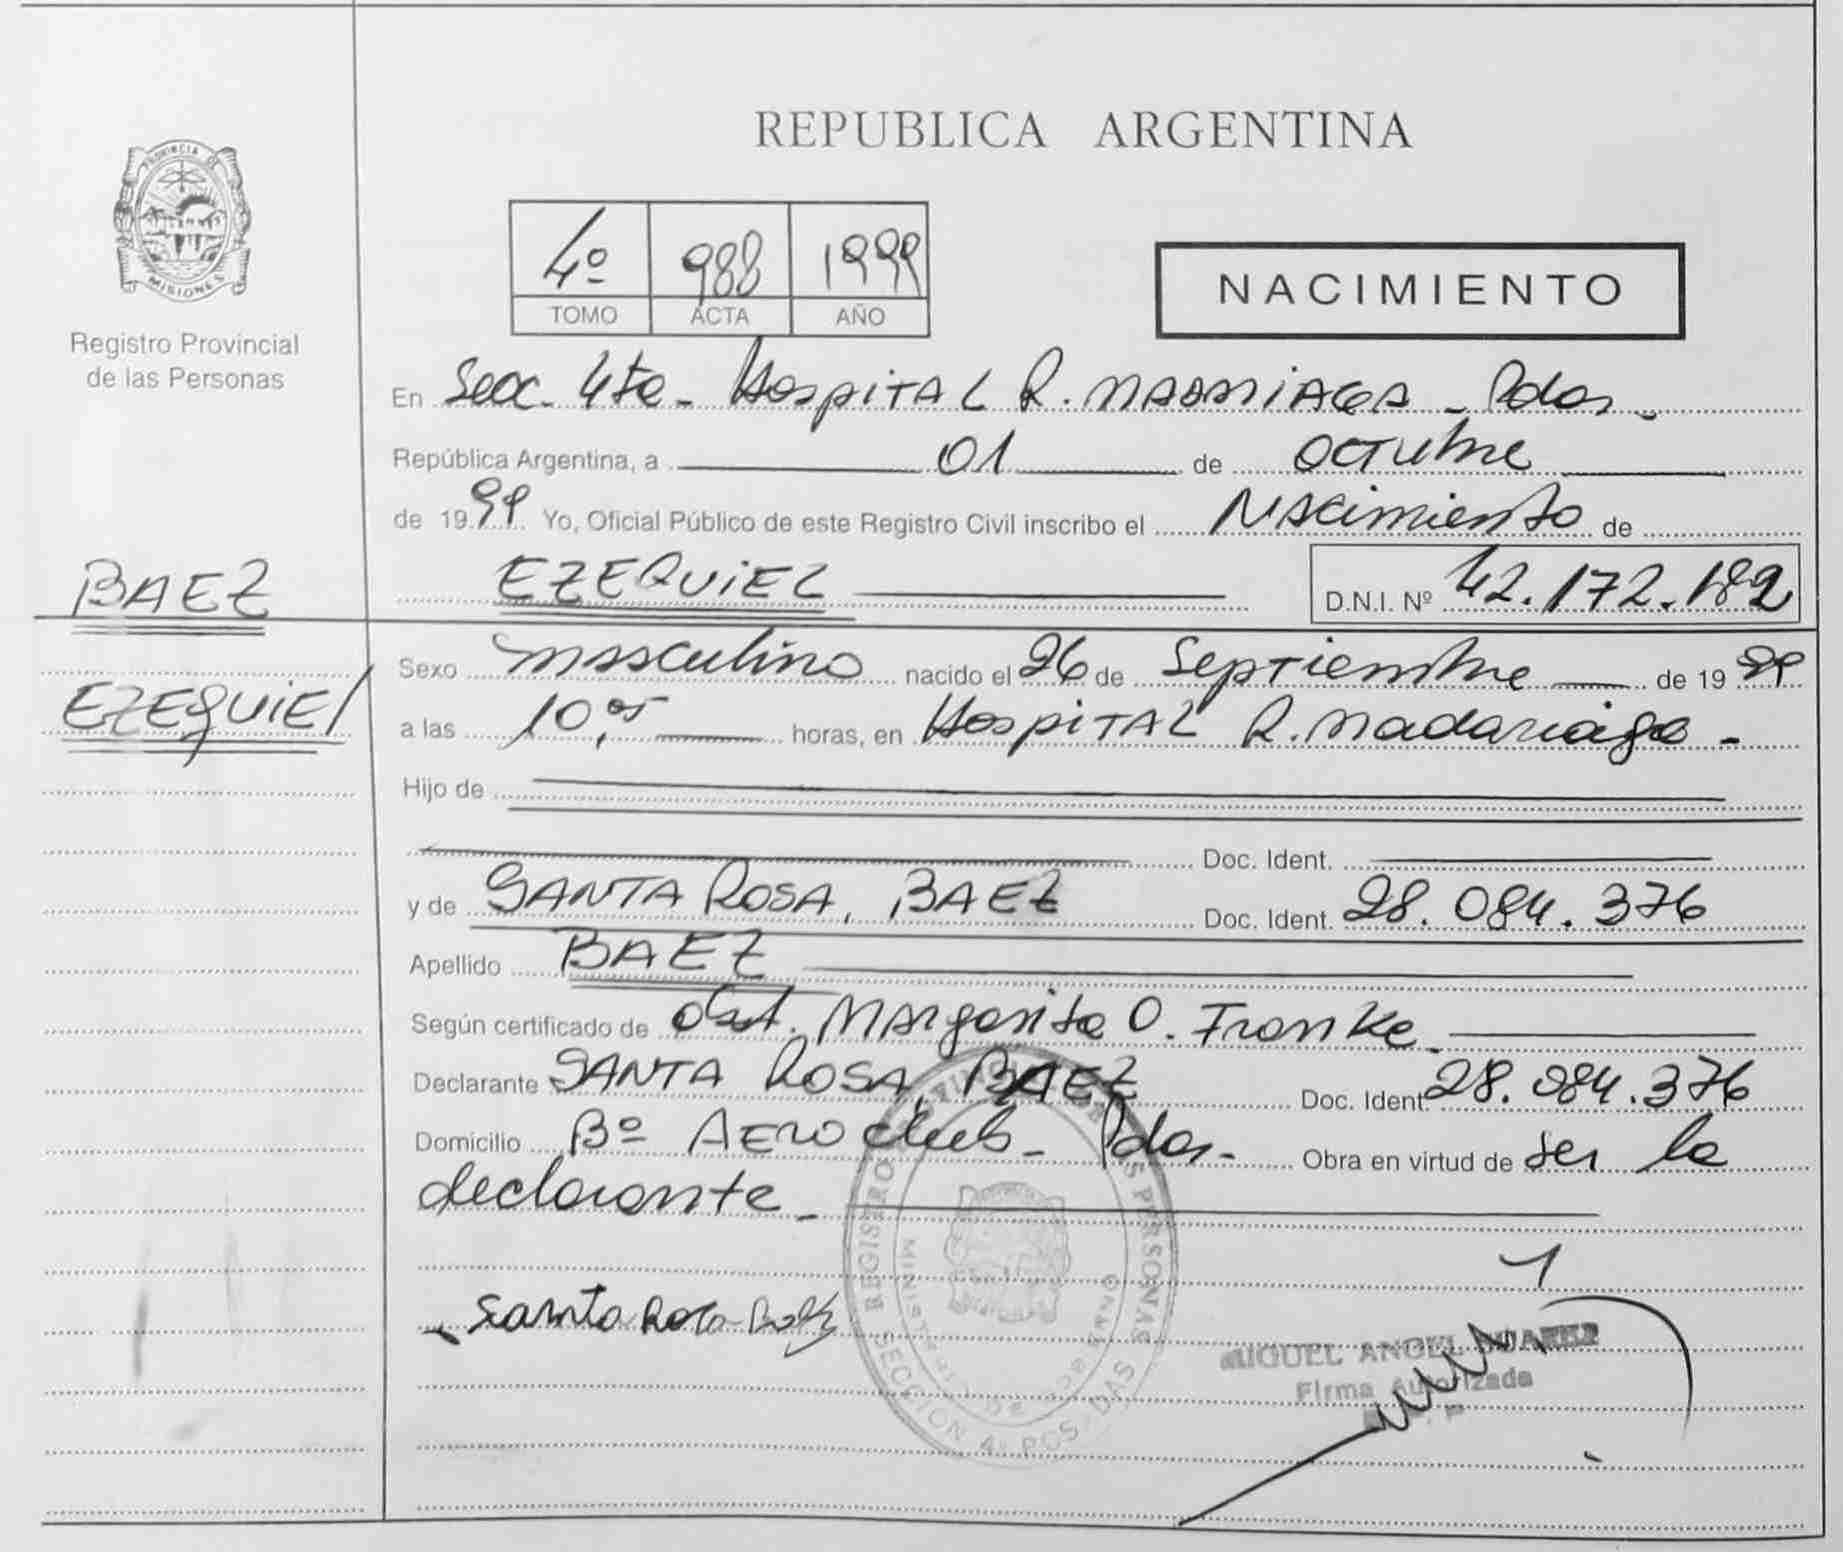 REPUBLICA ARGENTINA
PROVINCIA DE
MISIONES
Registro Provincial
de las Personas
4º 988 1999
TOMO ACTA AÑO
NACIMIENTO
En Secc. 4ta - Hospital R. MADARIAGA - Pdas. -
República Argentina, a 01 de octubre
de 1999 Yo, Oficial Público de este Registro Civil inscribo el Nacimiento de
BAEZ
EZEQUIEL D.N.I. Nº 42.172.182
EZEQUIEL
Sexo masculino nacido el 26 de Septiembre de 1999
a las 10,05 horas, en Hospital R. Madariaga -
Hijo de
Doc. Ident.
y de SANTA ROSA, BAEZ Doc. Ident. 28.084.376
Apellido BAEZ
Según certificado de Obst. Margarita O. Franke
Declarante SANTA ROSA, BAEZ Doc. Ident. 28.084.376
Domicilio Bº AERO club - Pdas - Obra en virtud de ser la
declarante -
Santa Rosa Baez
REGISTRO PERSONAS
SECCION 4ª POSADAS
MIGUEL ANGEL SUAREZ
Firma Autorizada